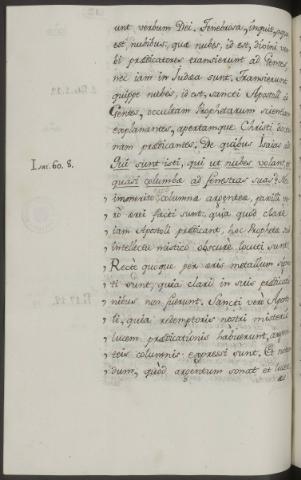 unt verbum Dei. Tenebrosa, inquit, aqua
est, nubibus, quæ nubes, id est, divini ver
bi prædicatores transierunt ad Gentes
nec iam in Judæa sunt. Transierunt
quippe nubes, id est, sancti Apostoli
Gentes, occultam Prophetarum scientiam
explanantes, apertamque Christi doc
nam prædicantes. De quibus Isaias
Isai. 60. 8.
Qui sunt isti, qui ut nubes volant, et
quasi columbæ ad fenestras suas?
immerito columna argentea, parilli
ro ærei facti sunt, quia quod clarè
iam Apostoli prædicant, hoc Prophetæ
intellectu mistico obscurè locuti sunt.
Rectè quoque per æris metallum
ti sunt, quia clari in suis prædicatio
nibus non fuerunt. Sancti verò Aposto
li, quia redemptoris nostri misterii
lucem prædicationis habuerunt,
teis columnis expressi sunt. Et
dum, quòd argentum sonat et lucet